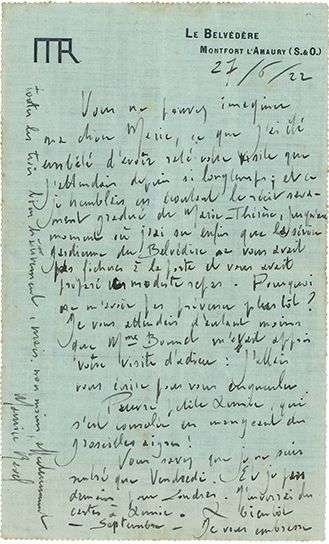 MR
LE BELVÉDÈRE
MONTFORT L'AMAURY (S.&O.)
27/6/22
Vous ne pouvez imaginer
ma chère Marie, ce que j'ai été
embêté d'avoir raté votre visite que
j'attendais depuis si longtemps; et ce
je tremblais en écoutant le récit savam-
ment gradué de Marie-Thérèse, jusqu'au
moment où j'ai su enfin que la
gardienne du Belvédère ne vous avait
pas fichue à la porte et vous avait
préparé un modeste repas. Pourquoi
ne m'avoir pas prévenu plus tôt?
Je vous attendais d'autant moins
que Mme Bonnet m'avait appris
votre visite d'adieu: J'allais
vous écrire pour vous
Pauvre petite qui
s'est consolée en mangeant des
groseilles aigres!
Vous savez que je ne suis
rentré que Vendredi. Et je pars
demain pour Londres. J'enverrai des
cartes à A bientôt
- Septembre - Je vous embrasse
toutes les très
mais non moins
Maurice Ravel